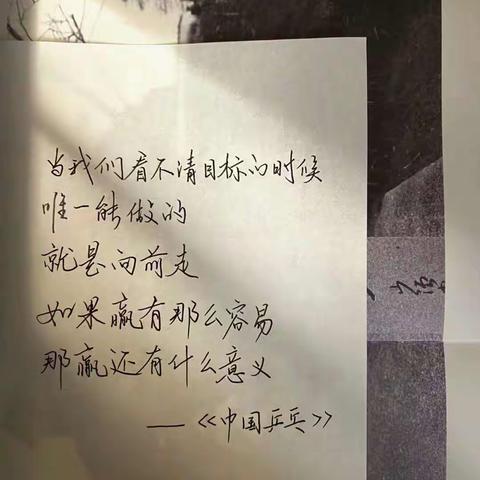 当我们看不清目标的时候
唯一能做的
就是向前走
如果赢有那么容易
那赢还有什么意义
——《中国乒乓》